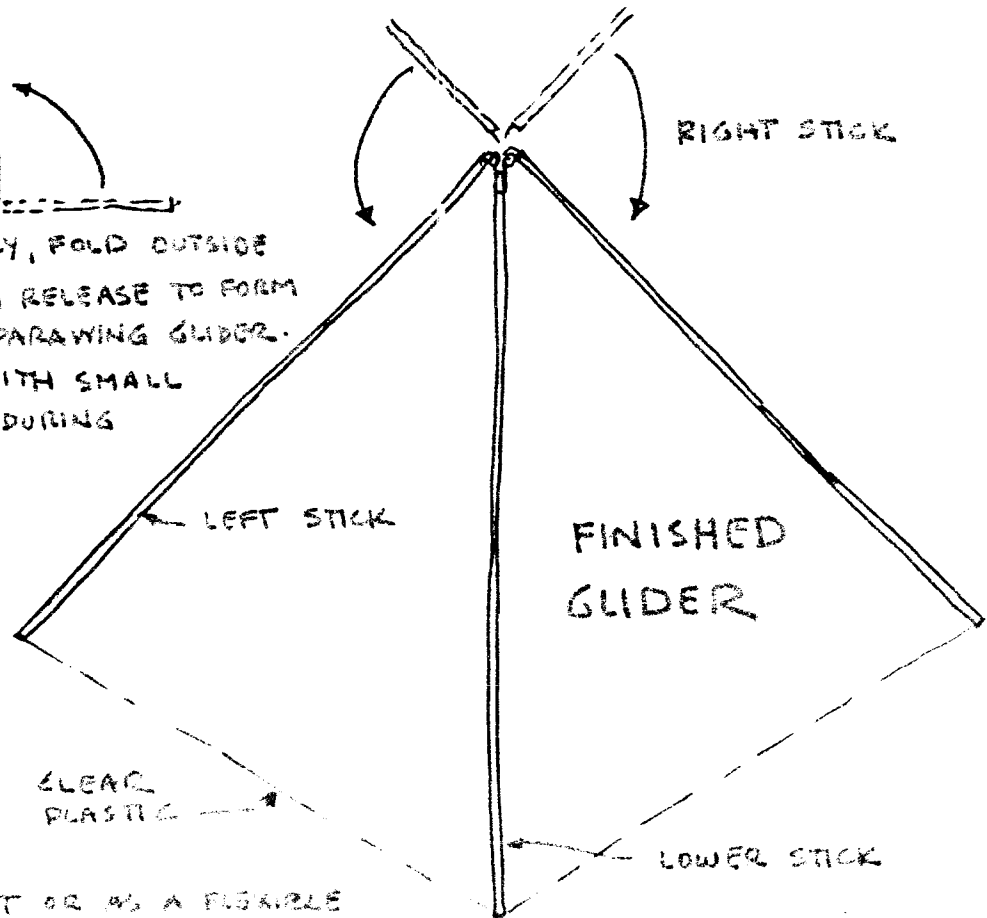 RIGHT STICK
LY, FOLD OUTSIDE
RELEASE TO FORM
PARAWING GLIDER.
WITH SMALL
DURING
LEFT STICK
FINISHED
GLIDER
CLEAR
PLASTIC
LOWER STICK
T OR AS A FLEXIBLE